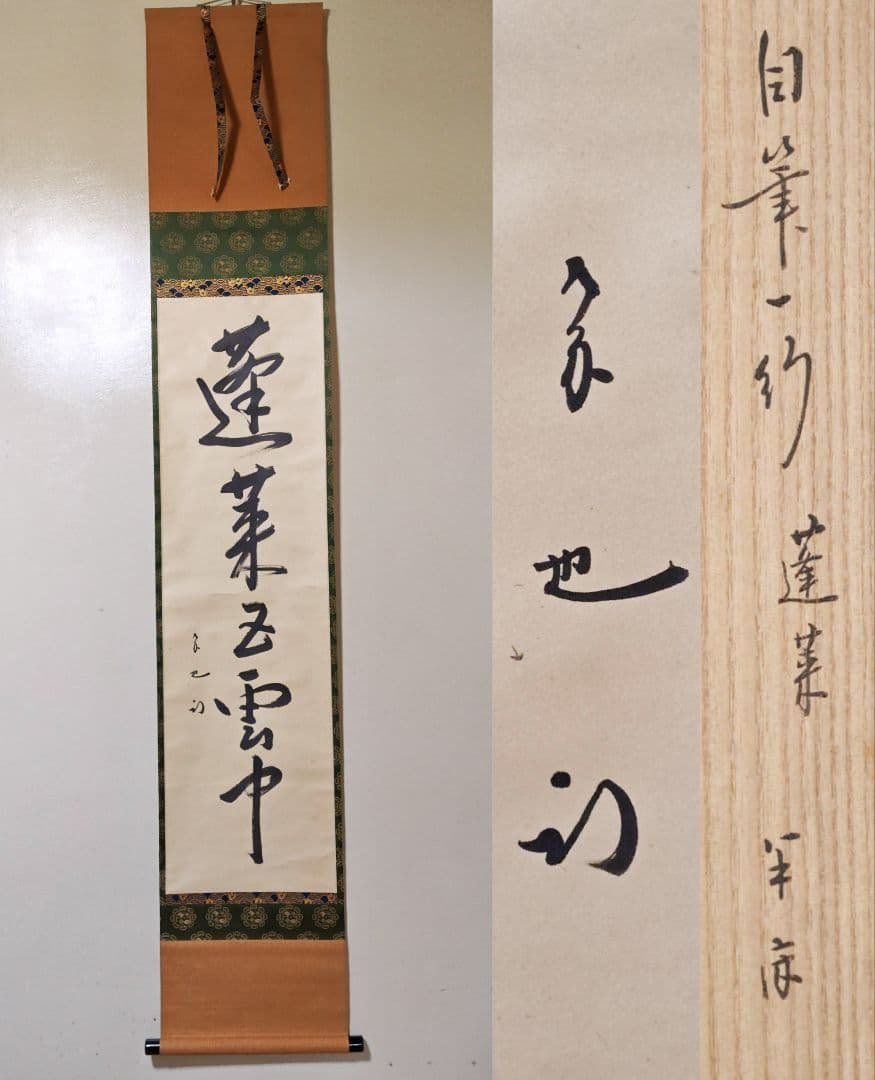 蓬莱五雲中
宗也
宗也
自筆一行 蓬莱 半床